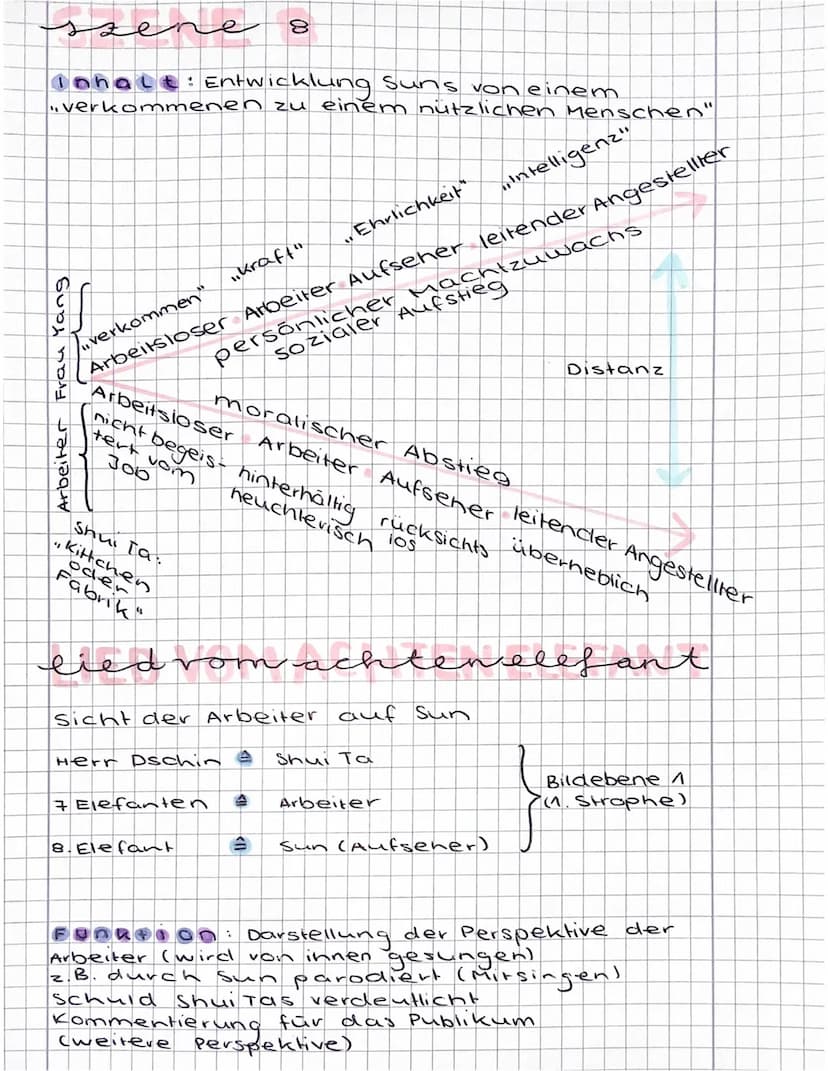 Szene 8
Inhalt: Entwicklung Suns von einem
„verkommenen zu einem nützlichen Menschen"
Frau Yang
„verkommen" „Kraft" „Ehrlichkeit" „Intelligenz"
Arbeitsloser · Arbeiter · Aufseher · leitender Angestellter
persönlicher Machtzuwachs
sozialer Aufstieg
Distanz
Arbeiter
moralischer Abstieg
Arbeitsloser · Arbeiter · Aufseher · leitender Angestellter
nicht begeis-
tert vom
Job
hinterhältig
heuchlerisch
rücksichts
los
überheblich
Shui Ta:
"Kittchen
oder
Fabrik"
Lied vom achten Elefant
Sicht der Arbeiter auf Sun
Herr Dschin ≙ Shui Ta
7 Elefanten ≙ Arbeiter
8. Elefant ≙ Sun (Aufseher)
Bildebene 1
(1. Strophe)
Funktion: Darstellung der Perspektive der
Arbeiter (wird von ihnen gesungen)
z.B. durch Sun parodiert (Mitsingen)
Schuld Shui Tas verdeutlicht
Kommentierung für das Publikum
(weitere Perspektive)